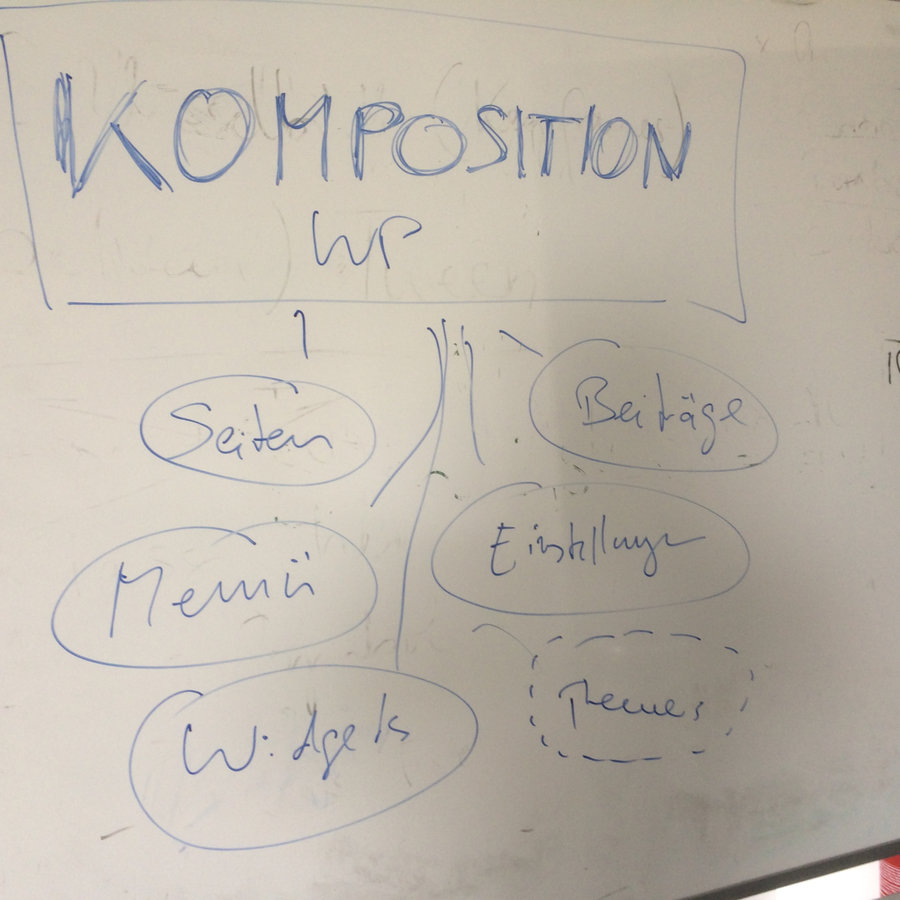 KOMPOSITION
WP
Seiten
Beiträge
Menü
Einstellungen
Widgets
Themes